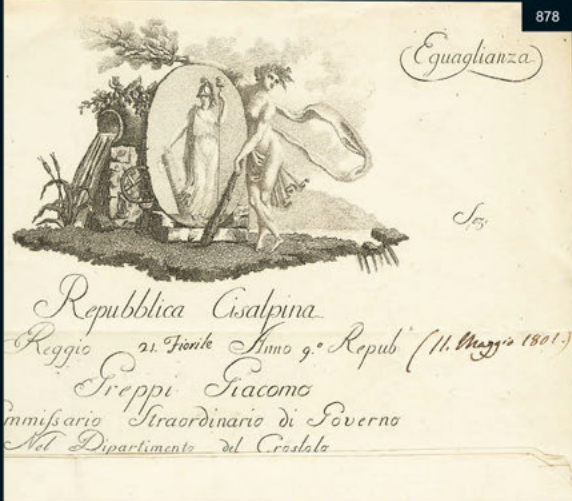 878
Eguaglianza
Repubblica Cisalpina
Reggio 21. Fiorile Anno 9.º Repub (11. Maggio 1801.)
Greppi Giacomo
mmissario Straordinario di Governo
Nel Dipartimento del Crostolo